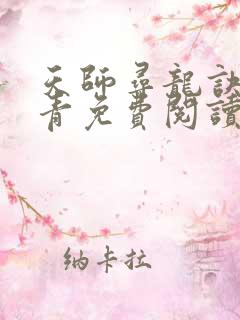 天師尋龍訣
青免費閱讀
納卡拉